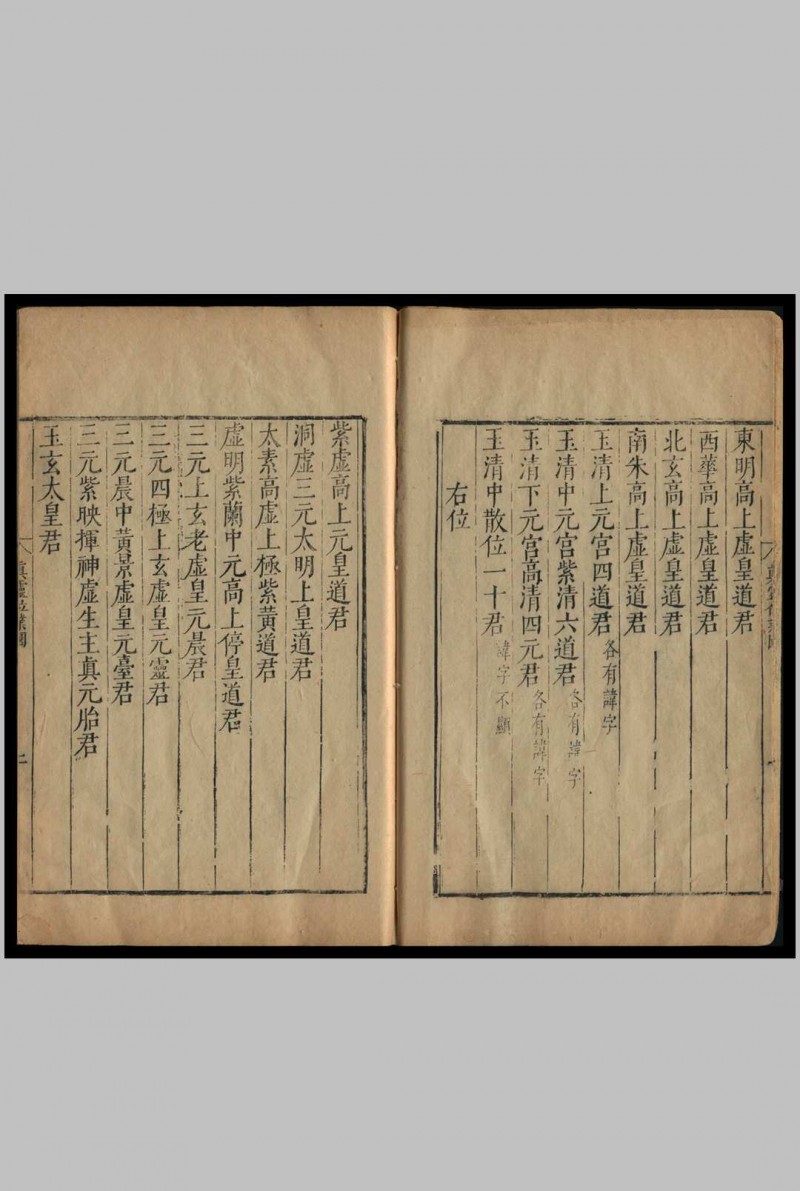 東明高上虛皇道君
西華高上虛皇道君
北玄高上虛皇道君
南朱高上虛皇道君
玉清上元宮四道君各有諱字
玉清中元宮紫清六道君各有諱字
玉清下元宮高清四元君各有諱字
玉清中散位一十君諱字不顯
右位
紫虛高上元皇道君
洞虛三元太明上皇道君
太素高虛上極紫黃道君
虛明紫蘭中元高上停皇道君
三元上玄老虛皇元晨君
三元四極上玄虛皇元靈君
三元晨中黃景虛皇元臺君
三元紫映揮神虛生主真元胎君
玉玄太皇君
真靈位業圖